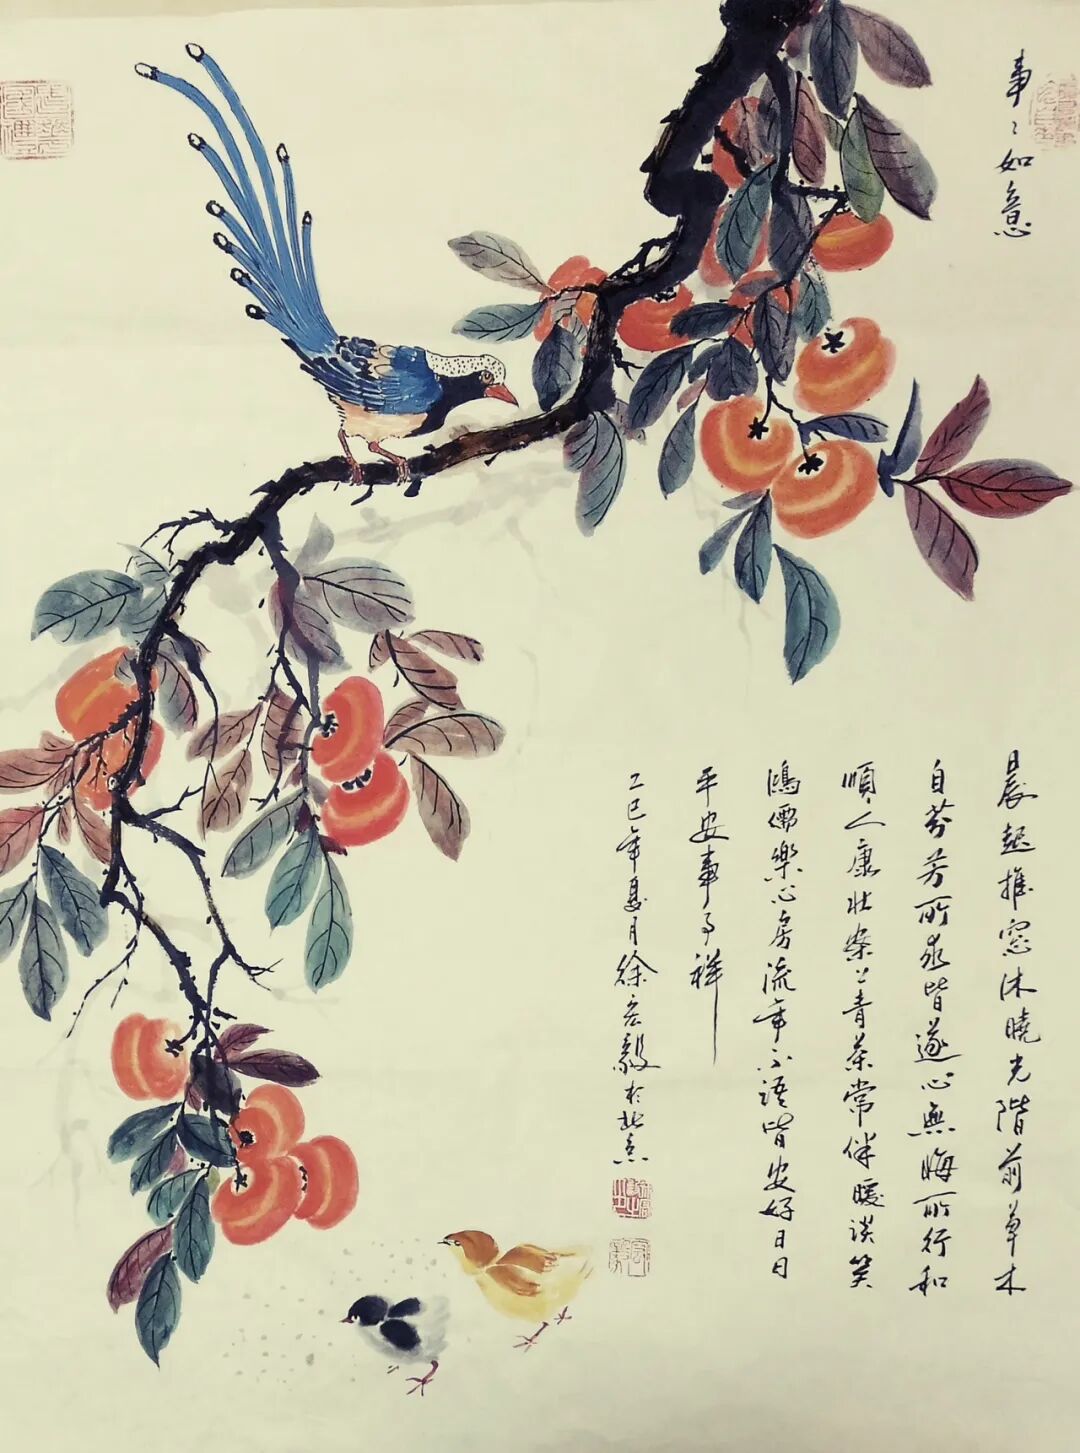 事〻如意
晨起推窓沐曉光階前草木
自芬芳所求皆遂心無悔所行和
順人康壮案上青茶常伴暖谈笑
鴻儒樂心房流年不語皆安好日日
平安事事祥
乙巳年夏月徐宏毅於北京